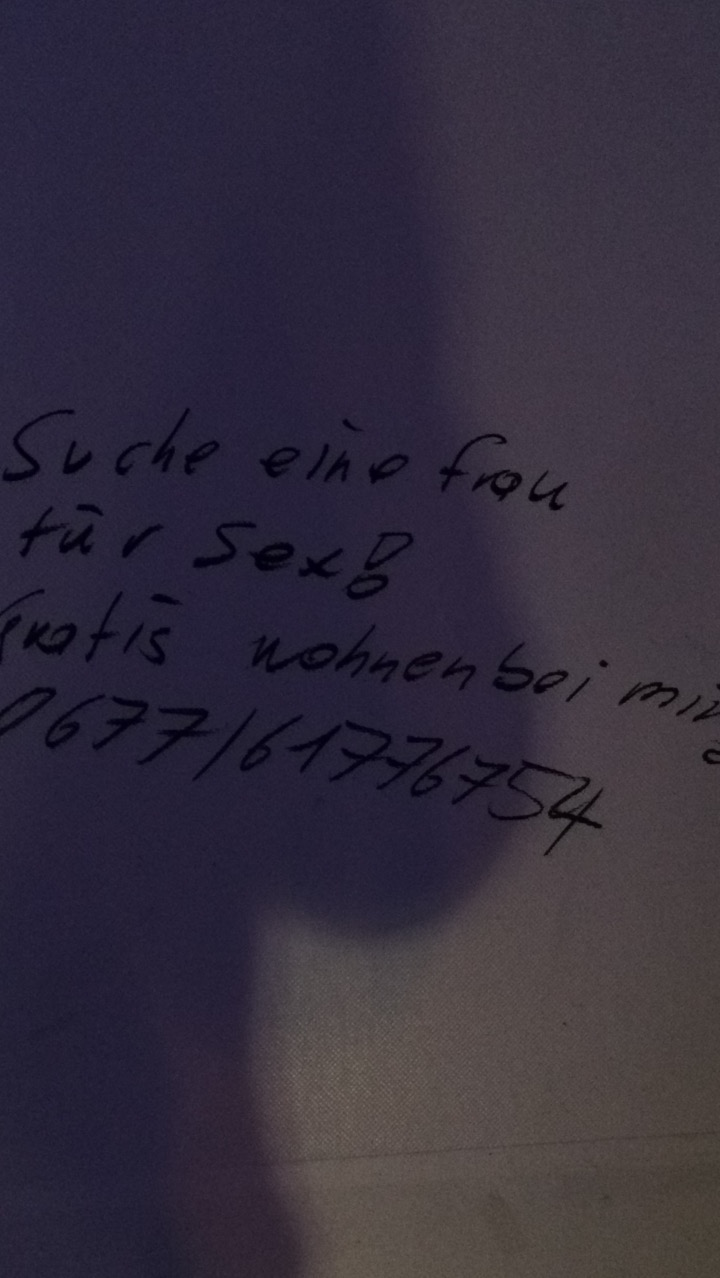 Suche eine frau
für Sex!
Gratis wohnen bei mir
0677/61776754